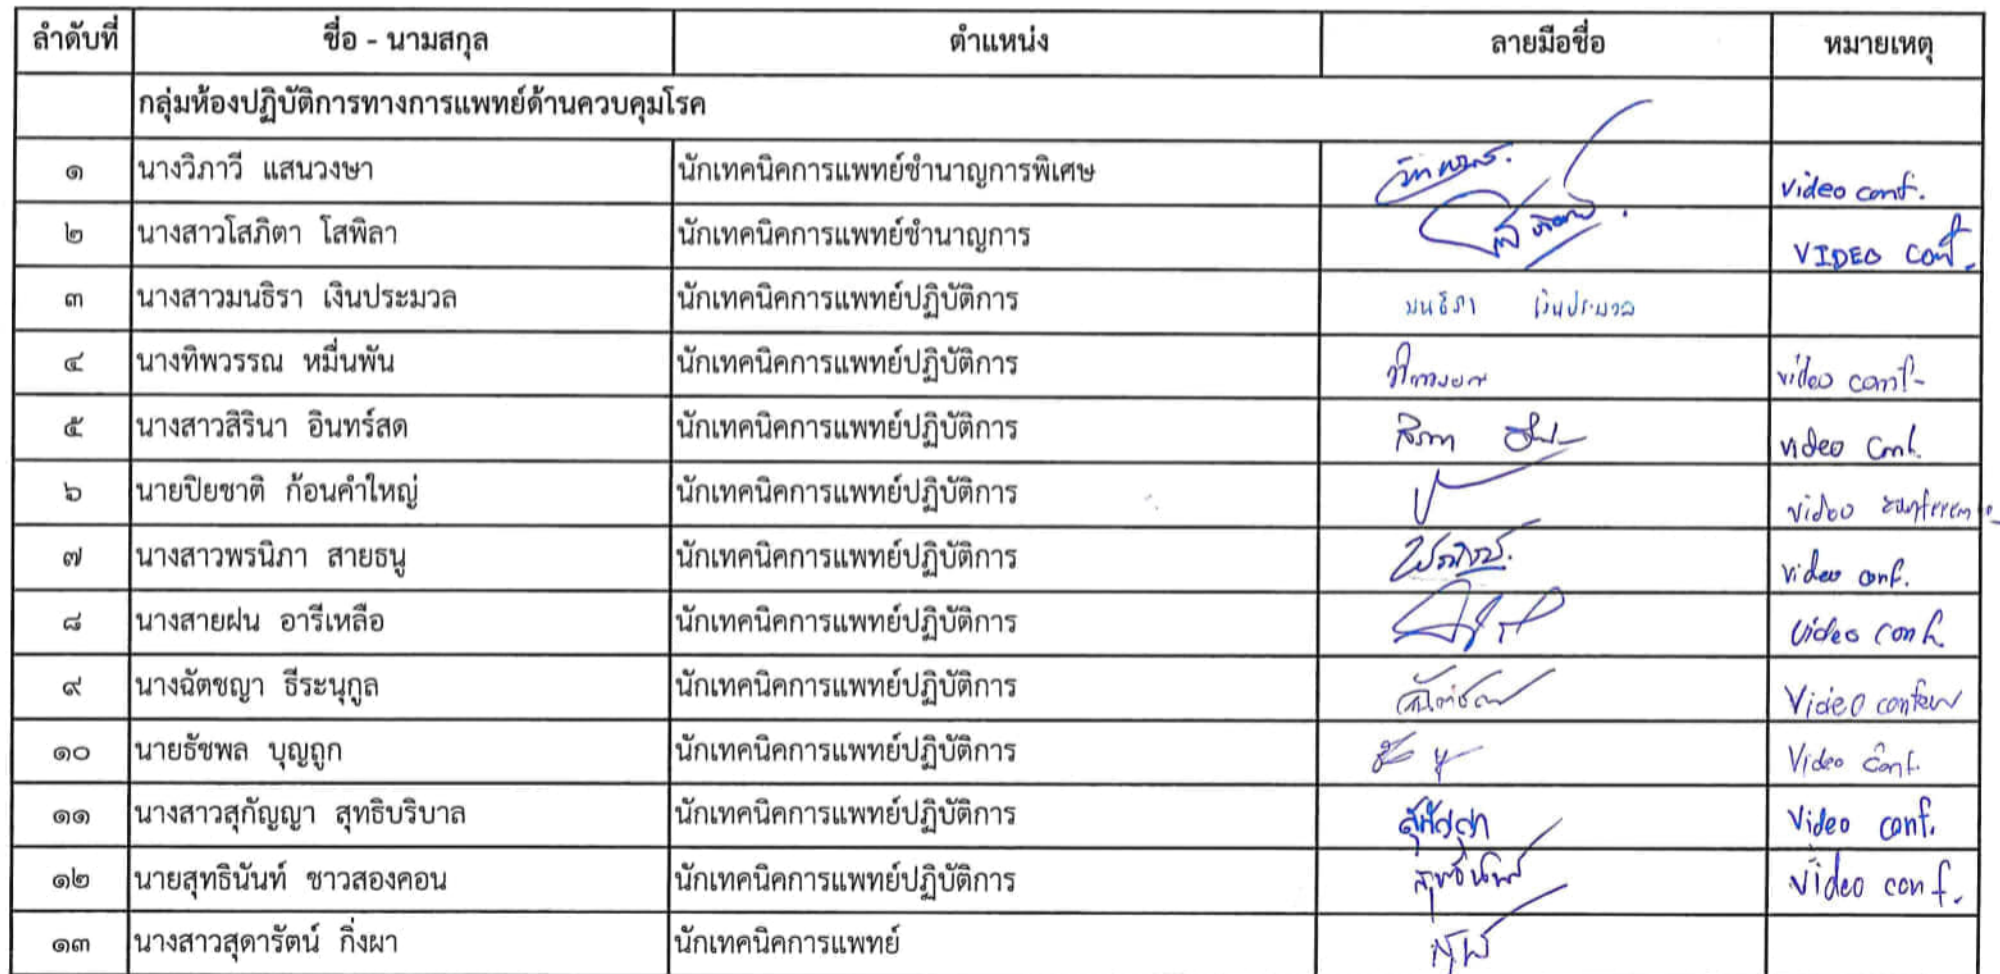 ลำดับที่ ชื่อ - นามสกุล ตำแหน่ง ลายมือชื่อ หมายเหตุ
กลุ่มห้องปฏิบัติการทางการแพทย์ด้านควบคุมโรค
๑ นางวิภาวี แสนวงษา นักเทคนิคการแพทย์ชำนาญการพิเศษ video conf.
๒ นางสาวโสภิตา โสพิลา นักเทคนิคการแพทย์ชำนาญการ VIDEO conf.
๓ นางสาวมนธิรา เงินประมวล นักเทคนิคการแพทย์ปฏิบัติการ มนธิรา เงินประมวล
๔ นางทิพวรรณ หมื่นพัน นักเทคนิคการแพทย์ปฏิบัติการ video conf-
๕ นางสาวสิรินา อินทร์สด นักเทคนิคการแพทย์ปฏิบัติการ video conf.
๖ นายปิยชาติ ก้อนคำใหญ่ นักเทคนิคการแพทย์ปฏิบัติการ video
๗ นางสาวพรนิภา สายธนู นักเทคนิคการแพทย์ปฏิบัติการ video conf.
๘ นางสายฝน อารีเหลือ นักเทคนิคการแพทย์ปฏิบัติการ video conf
๙ นางฉัตชญา ธีระนุกูล นักเทคนิคการแพทย์ปฏิบัติการ Video
๑๐ นายธัชพล บุญถูก นักเทคนิคการแพทย์ปฏิบัติการ Video conf.
๑๑ นางสาวสุกัญญา สุทธิบริบาล นักเทคนิคการแพทย์ปฏิบัติการ สุกัญญา Video conf.
๑๒ นายสุทธินันท์ ชาวสองคอน นักเทคนิคการแพทย์ปฏิบัติการ Video conf.
๑๓ นางสาวสุดารัตน์ กิ่งผา นักเทคนิคการแพทย์